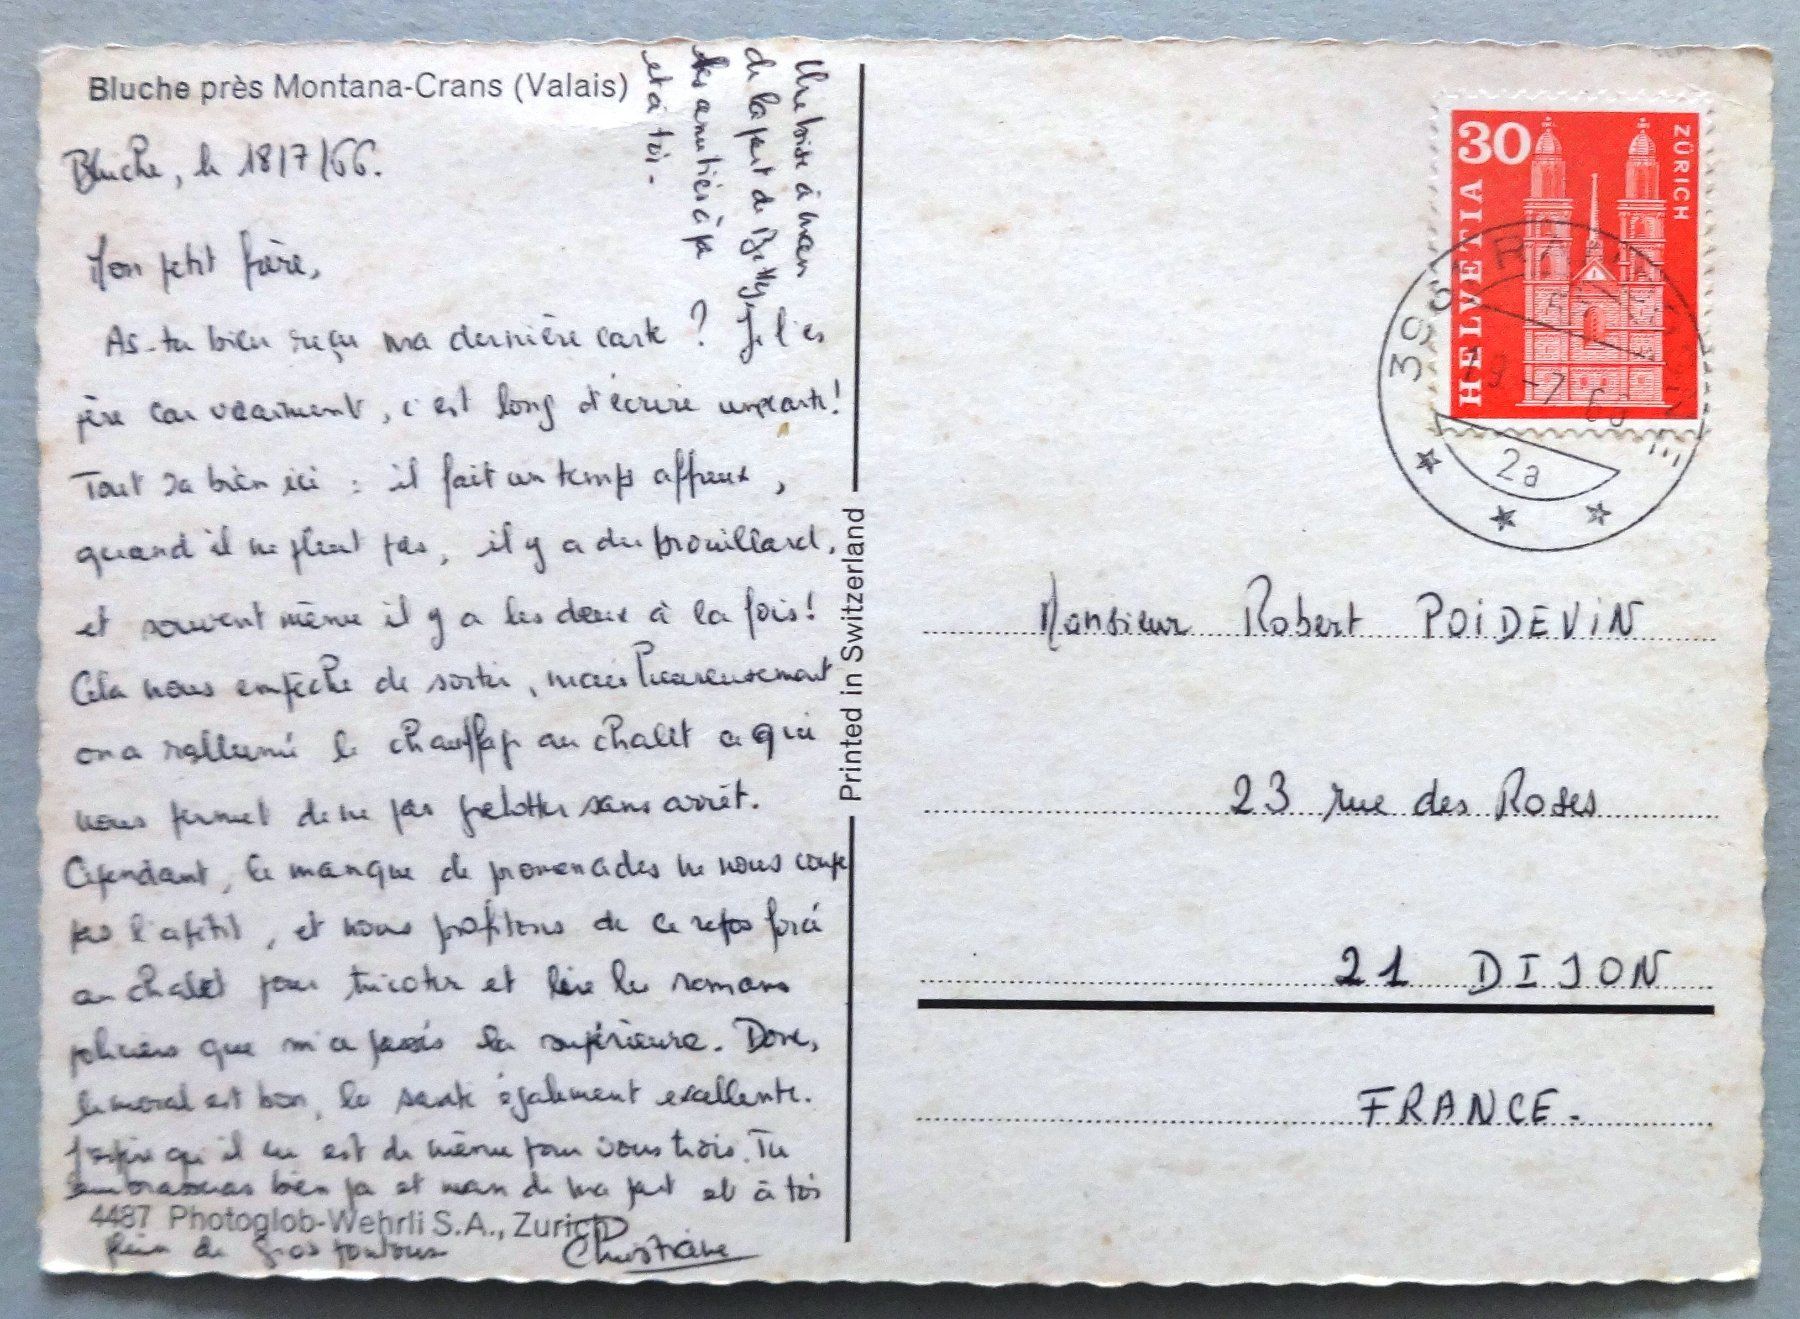 Bluche près Montana-Crans (Valais)
Bluche, le 18/7/66.
Mon petit frère,
As-tu bien reçu ma dernière carte ? Je l'es
père car vraiment, c'est long d'écrire une carte!
Tout va bien ici : il fait un temps affreux,
quand il ne pleut pas, il y a du brouillard,
et souvent même il y a les deux à la fois!
Cela nous empêche de sortir, mais heureusement
on a rallumé le chauffage au chalet ce qui
nous permet de ne pas grelotter sans arrêt.
Cependant, le manque de promenades ne nous coupe
pas l'apétit, et nous profitons de ce repos forcé
au chalet pour tricoter et lire les romans
policiers que m'a passés la supérieure. Donc,
le moral est bon, la santé également excellente.
J'espère qu'il en est de même pour vous trois. Tu
embrasseras bien pa et man de ma part et à toi
4487 Photoglob-Wehrli S.A., Zurich
plein de gros poutous
Christiane
Une bise à man
de la part de Betty,
les amitiés à pa
et à toi.
Printed in Switzerland
30
HELVETIA
ZÜRICH
2a
Monsieur Robert POIDEVIN
23 rue des Roses
21 DIJON
FRANCE.